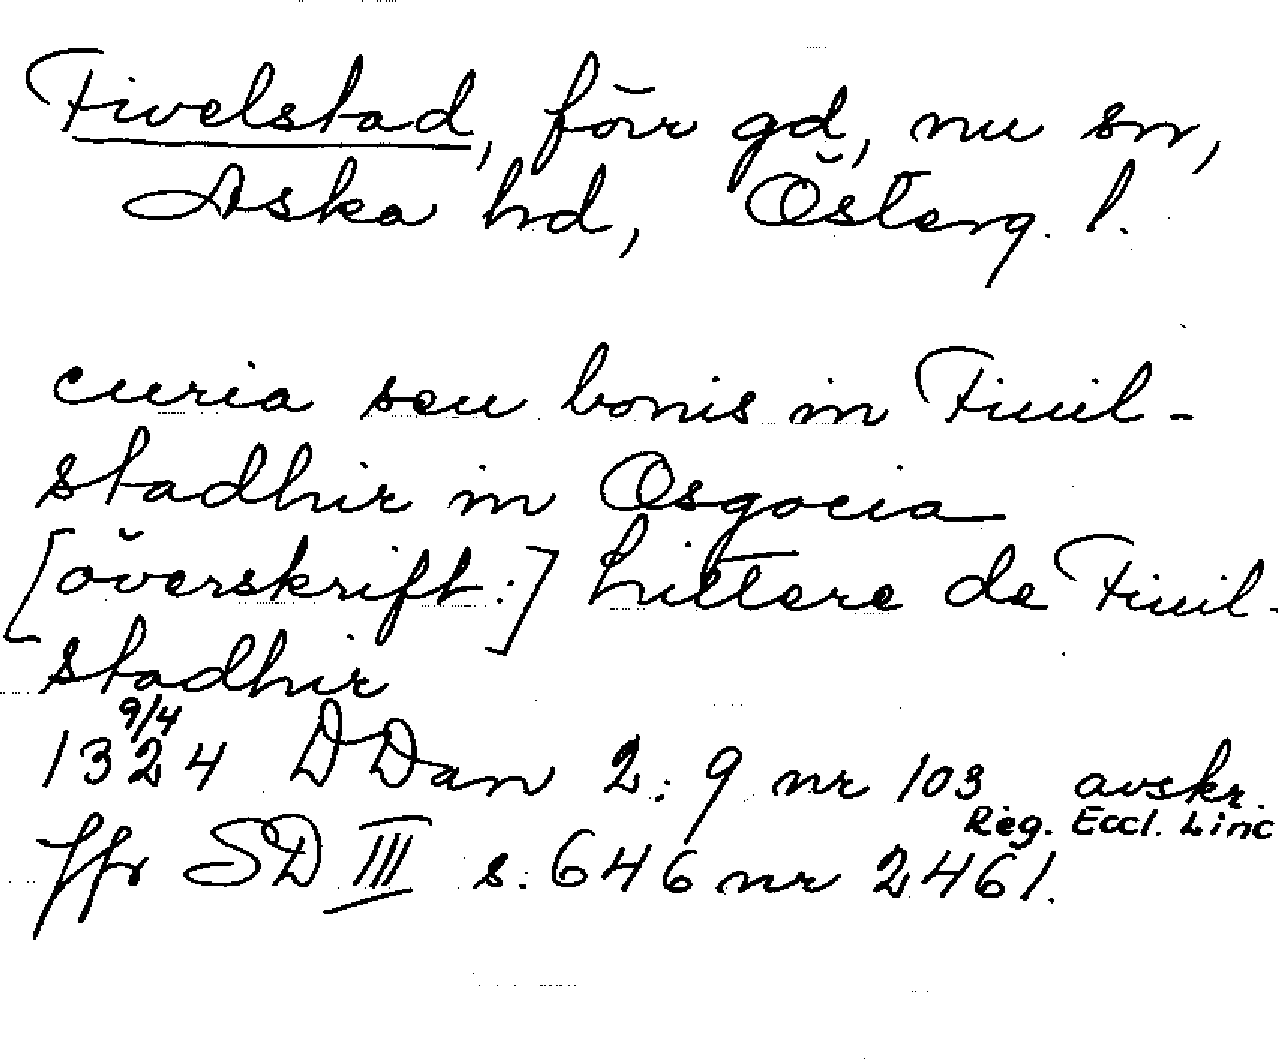 Fivelstad, förr gd, nu sn,
Aska hd, Österg. l.
curia seu bonis in Fiuil-
stadhir in Osgocia
[överskrift:] Littere de Fiuil-
stadhir
9/4
1324 DDan 2:9 nr 103 avskr.
Reg. Eccl. Linc
Jfr SD III s. 646 nr 2461.